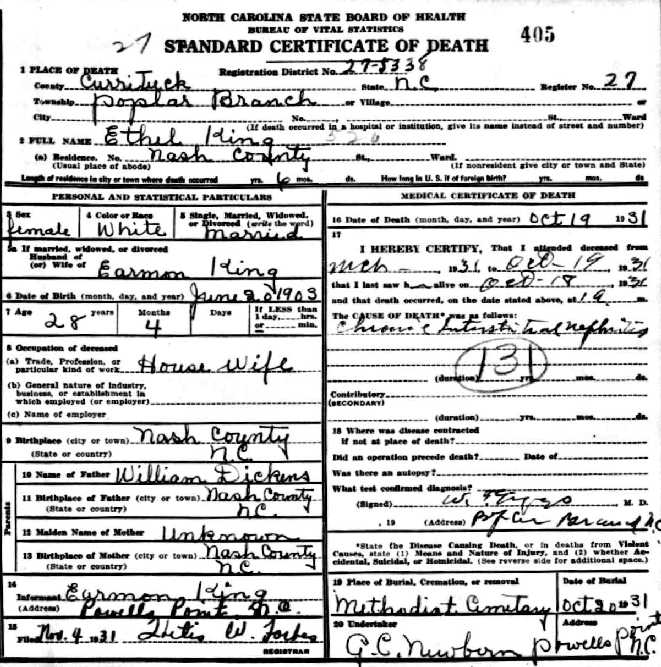 NORTH CAROLINA STATE BOARD OF HEALTH
BUREAU OF VITAL STATISTICS
27 STANDARD CERTIFICATE OF DEATH 405
1 PLACE OF DEATH Registration District No. 27-5338
County Currituck State N.C Register No. 27
Township Poplar Branch or Village or
City No. St., Ward
(If death occurred in a hospital or institution, give its name instead of street and number)
2 FULL NAME Ethel King 326
(a) Residence. No. Nash County St., Ward.
(Usual place of abode) (If nonresident give city or town and State)
Length of residence in city or town where death occurred yrs. 6 mos. ds. How long in U. S. if of foreign birth? yrs. mos. ds.
PERSONAL AND STATISTICAL PARTICULARS
3 Sex 4 Color or Race 5 Single, Married, Widowed, or Divorced (write the word)
female White Married
5a If married, widowed, or divorced
Husband of
(or) Wife of Earmon King
6 Date of Birth (month, day, and year) June 20 1903
7 Age 28 years Months 4 Days If LESS than 1 day,....hrs. or....min.
8 Occupation of deceased
(a) Trade, Profession, or particular kind of work House Wife
(b) General nature of Industry, business, or establishment in which employed (or employer)
(c) Name of employer
9 Birthplace (city or town) Nash County
(State or country) N.C
Parents
10 Name of Father William Dickens
11 Birthplace of Father (city or town) Nash County
(State or country) N.C.
12 Maiden Name of Mother Unknown
13 Birthplace of Mother (city or town) Nash County
(State or country) N.C.
14
Informant Earmon King
(Address) Powells Point N.C
15
Filed Nov. 4 1931 W. Forbes
REGISTRAR
MEDICAL CERTIFICATE OF DEATH
16 Date of Death (month, day, and year) Oct 19 1931
17
I HEREBY CERTIFY, That I attended deceased from
Mch 1931 to Oct-19 1931
that I last saw h alive on Oct-18 1931
and that death occurred, on the date stated above, at 1 a. m.
The CAUSE OF DEATH* was as follows:
Chronic Interstitial nephritis
131
(duration) yrs. mos. ds.
Contributory
(SECONDARY)
(duration) yrs. mos. ds.
18 Where was disease contracted
if not at place of death?
Did an operation precede death? Date of
Was there an autopsy?
What test confirmed diagnosis?
(Signed) W. T. Griggs M. D.
, 19 (Address) Poplar Branch N.C
*State the Disease Causing Death, or in deaths from Violent
Causes, state (1) Means and Nature of Injury, and (2) whether Ac-
cidental, Suicidal, or Homicidal. (See reverse side for additional space.)
19 Place of Burial, Cremation, or removal Date of Burial
Methodist Cemetary Oct 20 1931
20 Undertaker Address
G.C. Newbern Powells Point N.C.